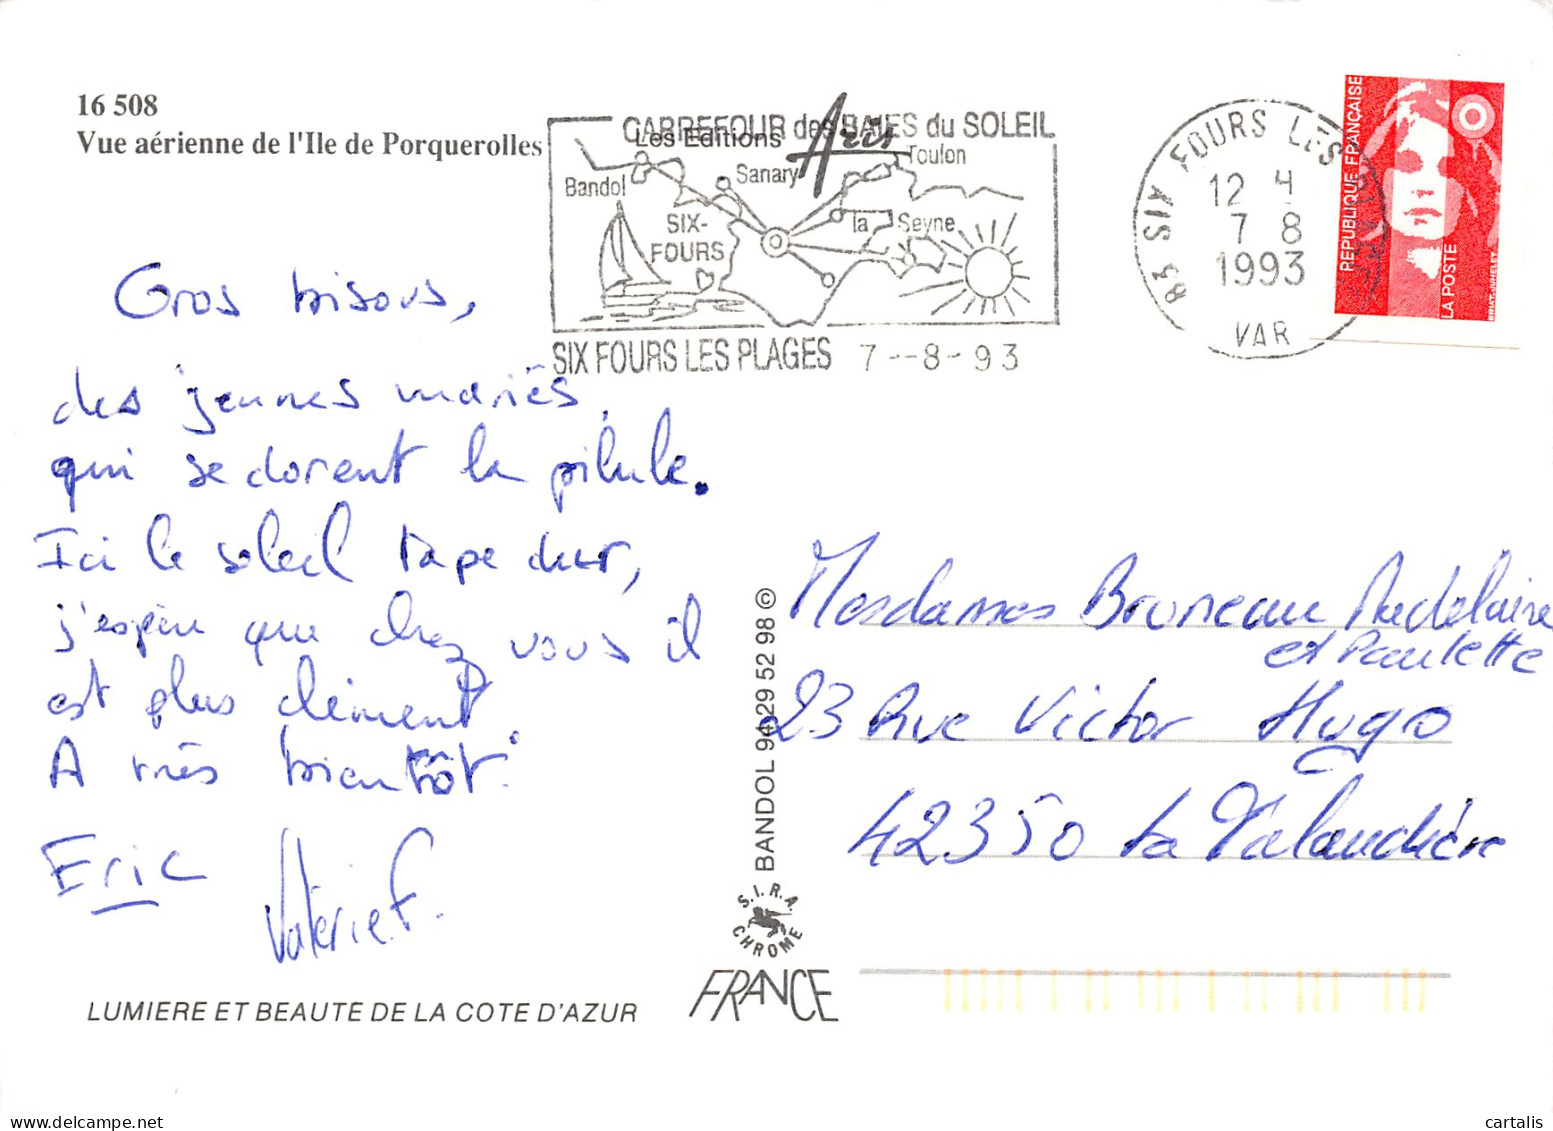 16 508
Vue aérienne de l'Ile de Porquerolles
Les Editions Aris
CARREFOUR des BAIES du SOLEIL
Bandol
Sanary
Toulon
SIX-
FOURS
la Seyne
SIX FOURS LES PLAGES 7--8-93
83 SIX FOURS LES PLAGES
12 H
7 8
1993
VAR
REPUBLIQUE FRANÇAISE
LA POSTE
Gros bisous,
des jeunes mariés,
qui se dorent la pilule.
Ici le soleil tape dur,
j'espère que chez vous il
est plus clément.
A très bientôt.
Eric
Valérie.F.
Mesdames Bruneau Madelaine
et Paulette
23 Rue Victor Hugo
42350 La Talaudière
BANDOL 94 29 52 98 ©
S.I.R.A.
CHROME
FRANCE
LUMIERE ET BEAUTE DE LA COTE D'AZUR
cartalis